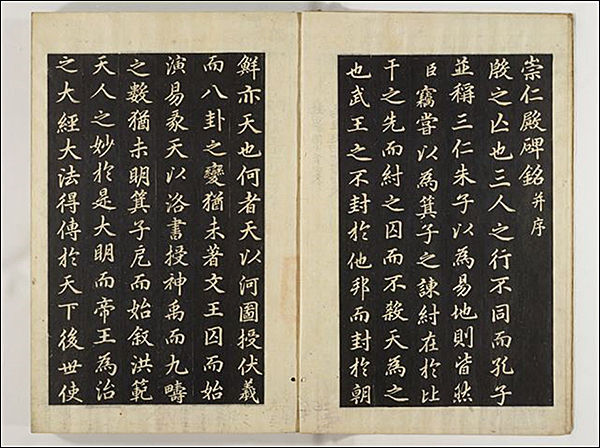 崇仁殿碑銘并序
殷之亾也三人之行不同而孔子
並稱三仁朱子以為易地則皆然
臣竊嘗以為箕子之諫紂在於比
干之先而紂之囚而不殺天為之
也武王之不封於他邦而封於朝
鮮亦天也何者天以河圖授伏羲
而八卦之變猶未著文王囚而始
演易彖天以洛書授神禹而九疇
之數猶未明箕子戹而始叙洪範
天人之妙於是大明而帝王為治
之大經大法得傳於天下後世使